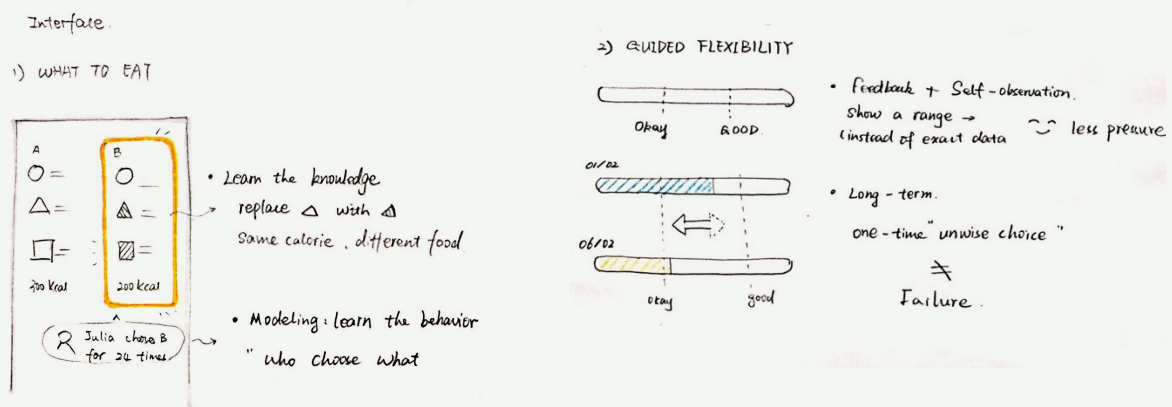 Interface.
1) WHAT TO EAT
A
B
300 kcal
200 kcal
Julia chose B
for 24 times
• Learn the knowledge
replace △ with
Same calorie, different food.
• Modeling: learn the behavior
" who choose what
2) GUIDED FLEXIBILITY
Okay
GOOD.
01/02
06/02
okay
good
• Feedback + Self-observation.
show a range →
(instead of exact data
less pressure
• Long-term.
one-time "unwise choice"
≠
Failure.